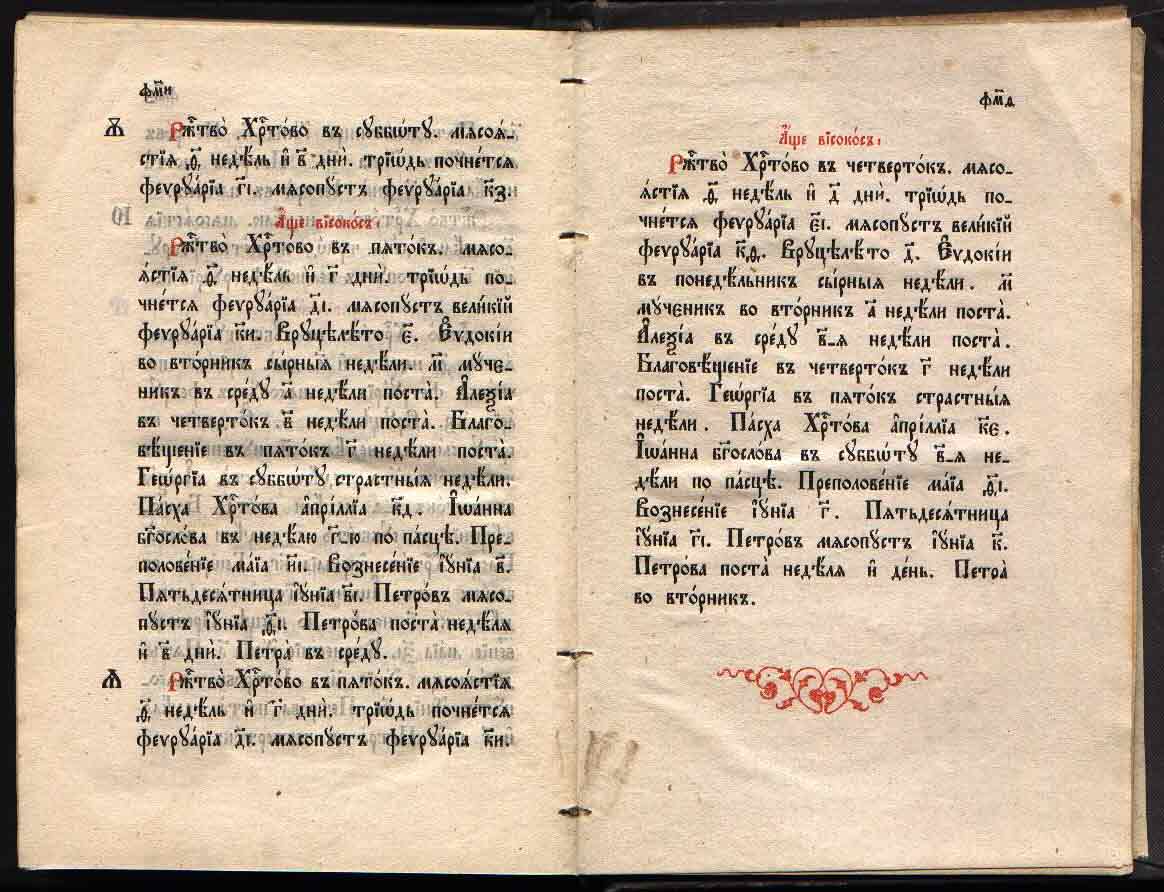 фм҃и
Ѫ Рж҇тво̀ Хр҇то́во въ сꙋббѡ́тꙋ. мѧсоѧ́-
стїѧ ѳ҃, недѣ́ль и҆ в҃ дни̂. трїѡ́дь почне́тсѧ
феѵрꙋа́рїа г҃і. мѧсопꙋ́стъ феѵрꙋа́рїа к҃з.
А҆́ще вїсоко́съ:
Рж҇тво̀ Хр҇то́во въ пѧто́къ. мѧсо-
ѧ́стїѧ ѳ҃, недѣ́ль и҆ г҃ дни̂. трїѡ́дь по-
чне́тсѧ феѵрꙋа́рїа д҃і. мѧсопꙋ́стъ вели́кїй
феѵрꙋа́рїа к҃и. Врꙋцѣлѣ́то є҃. Є҆ѵдокі́и
во вто́рникъ сы́рныѧ недѣ́ли. м҃ мꙋ́че-
никъ въ сре́дꙋ а҃ недѣ́ли поста̀. А҆ле́ѯїа
въ четверто́къ. в҃ недѣ́ли поста̀. Благо-
вѣ́щенїе въ пѧто́къ г҃ недѣ́ли поста̀.
Геѡ́ргїа въ сꙋббѡ́тꙋ страстны́ѧ недѣ́ли.
Па́сха Хр҇то́ва а҆прі́ллїа к҃д. І҆ѡа́нна
бг҃осло́ва въ недѣ́лю г҃-ю по па́сцѣ. Пре-
полове́нїе ма́їа и҃і. Вознесе́нїе і҆ꙋ́нїа в҃.
Пѧтьдесѧ́тница і҆ꙋ́нїа в҃і. Петро́въ мѧсо-
пꙋ́стъ і҆ꙋ́нїа ѳ҃і. Петро́ва поста̀ недѣ́лѧ
и҆ в҃ дни̂. Петра̀ въ сре́дꙋ.
Ѧ Рж҇тво̀ Хр҇то́во въ пѧто́къ. мѧсоѧ́стїѧ
ѳ҃, недѣ́ль и҆ г҃ дни̂. трїѡ́дь почне́тсѧ
феѵрꙋа́рїа д҃і. мѧсопꙋ́стъ феѵрꙋа́рїа к҃и.
фм҃ѳ
А҆́ще вїсоко́съ:
Рж҇тво̀ Хр҇то́во въ четверто́къ. мѧсо-
ѧ́стїѧ ѳ҃, недѣ́ль и҆ д҃ дни̂. трїѡ́дь по-
чне́тсѧ феѵрꙋа́рїа є҃і. мѧсопꙋ́стъ вели́кїй
феѵрꙋа́рїа к҃ѳ. Врꙋцѣлѣ́то д҃. Є҆ѵдокі́и
въ понедѣ́льникъ сы́рныѧ недѣ́ли. м҃
мꙋ́ченикъ во вто́рникъ а҃ недѣ́ли поста̀.
А҆ле́ѯїа въ сре́дꙋ в҃-ѧ недѣ́ли поста̀.
Благовѣ́щенїе въ четверто́къ г҃ недѣ́ли
поста̀. Геѡ́ргїа въ пѧто́къ страстны́ѧ
недѣ́ли. Па́сха Хр҇то́ва а҆прі́ллїа к҃є.
І҆ѡа́нна бг҃осло́ва въ сꙋббѡ́тꙋ в҃-ѧ не-
дѣ́ли по па́сцѣ. Преполове́нїе ма́їа ѳ҃і.
Вознесе́нїе і҆ꙋ́нїа г҃. Пѧтьдесѧ́тница
і҆ꙋ́нїа г҃і. Петро́въ мѧсопꙋ́стъ і҆ꙋ́нїа к҃.
Петро́ва поста̀ недѣ́лѧ и҆ де́нь. Петра̀
во вто́рникъ.